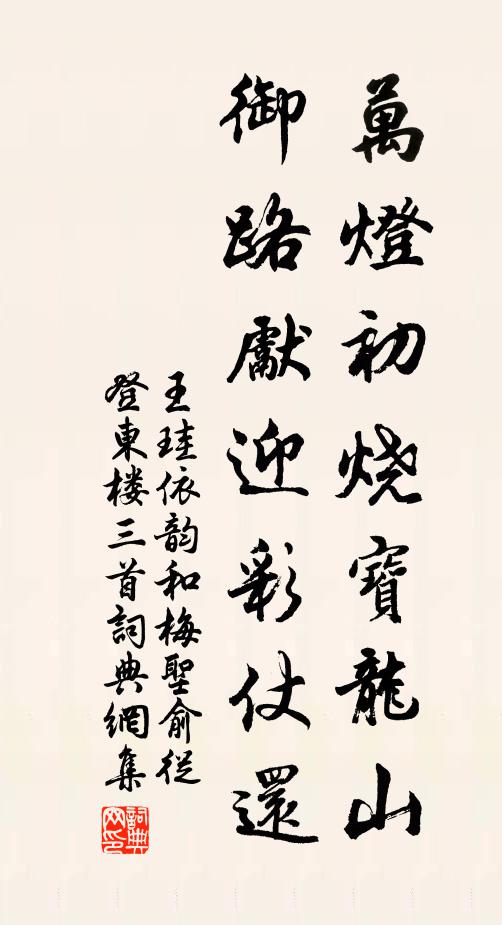 萬燈初烧寶龍山
御路獻迎彩仗還
王珪依韵和梅聖俞從
登東楼三首詞典網集
詞典网印